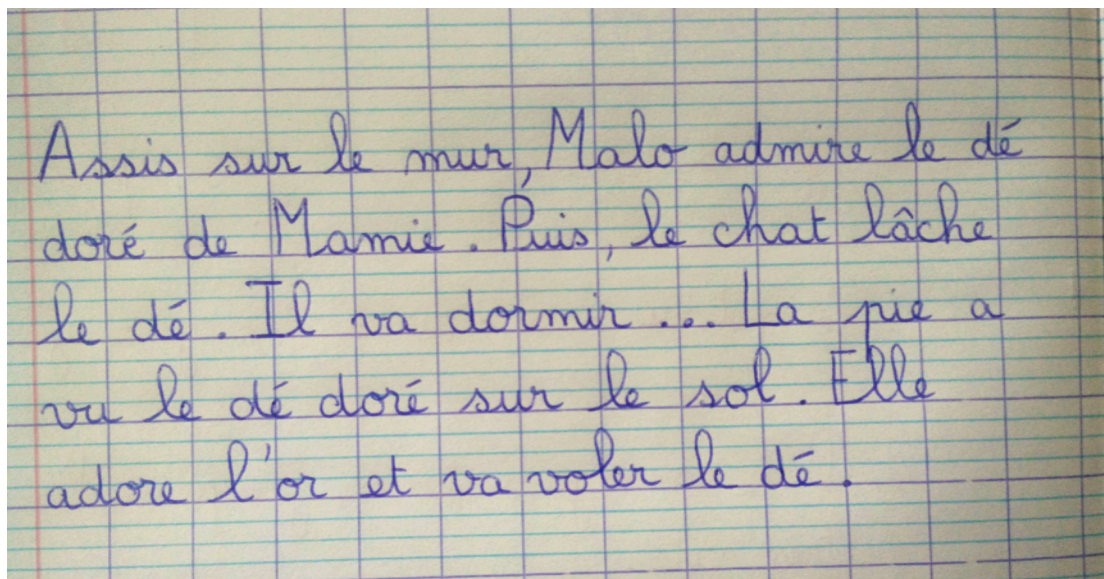 Assis sur le mur, Malo admire le dé
doré de Mamie. Puis, le chat lâche
le dé. Il va dormir... La pie a
vu le dé doré sur le sol. Elle
adore l'or et va voler le dé.